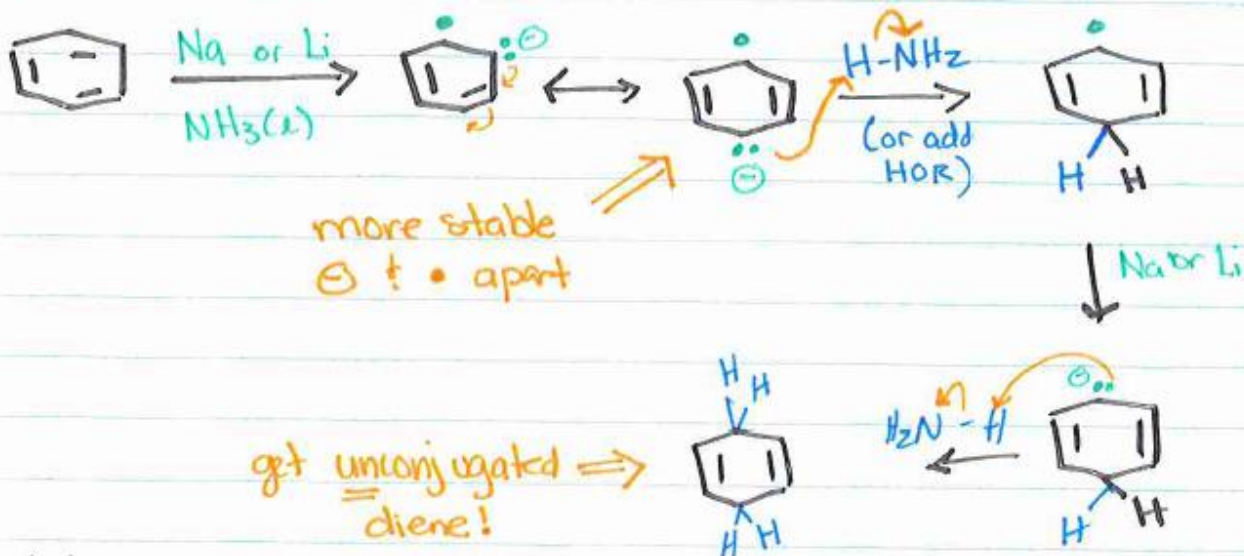 Na or Li
NH₃(l)
⊖
H-NH₂
(or add
HOR)
⊖
H H
more stable
⊖ & • apart
Na or Li
H H
⊖
H₂N-H
get unconjugated ⇒
diene!
H H
H H